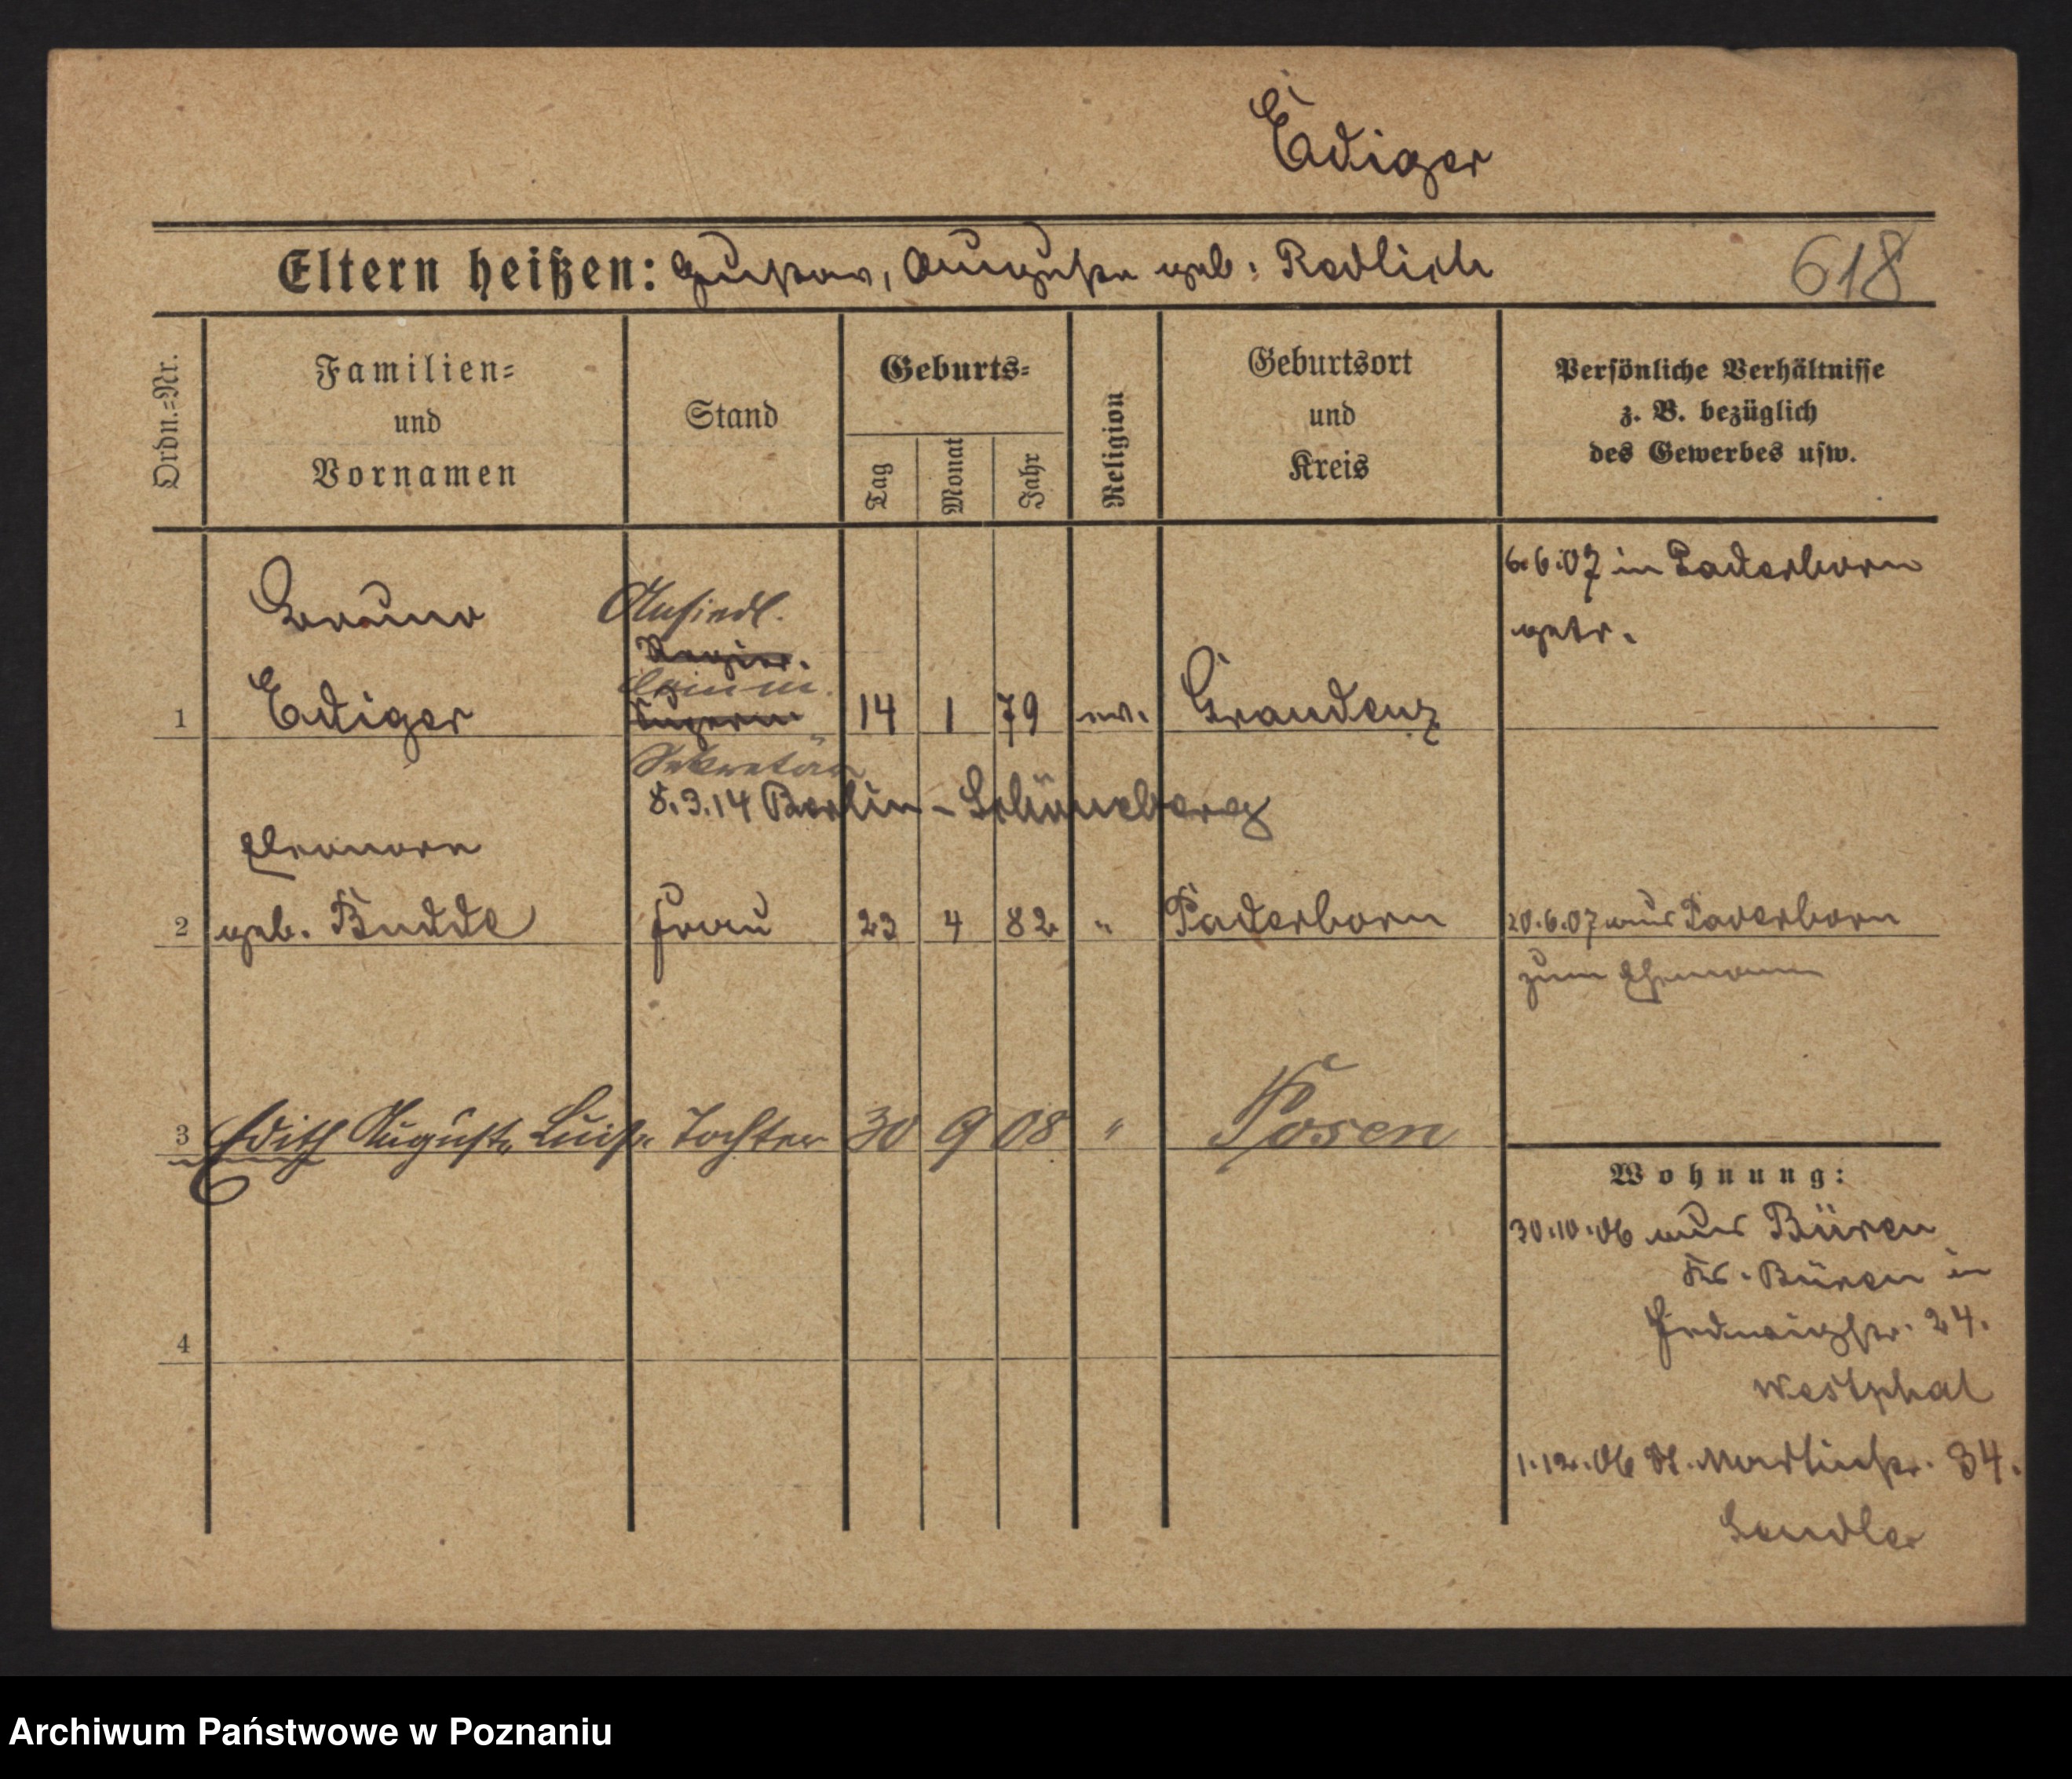 Ediger
Eltern heißen: Gustav, Auguste geb. Redlich
618
Ordn.=Nr.
Familien=
und
Vornamen
Stand
Geburts=
Tag
Monat
Jahr
Religion
Geburtsort
und
Kreis
Persönliche Verhältnisse
z. B. bezüglich
des Gewerbes usw.
6.6.07 in Paderborn
getr.
Bruno
Ansiedl.
Regier.
Comm.
1 Ediger
14 1 79 ev. Graudenz
Sekretär
8.3.14 Berlin-Schöneberg
Eleonore
2 geb. Budde Frau 23 4 82 " Paderborn 20.6.07 aus Paderborn
zum Ehemann
3 Edith Auguste Luise Tochter 30 9 08 " Posen
Wohnung:
30.10.06 aus Büren
Krs. Büren in
Hedwigstr. 24.
4
Westphal
1.12.06 St. Martinstr. 34.
Sendler
Archiwum Państwowe w Poznaniu